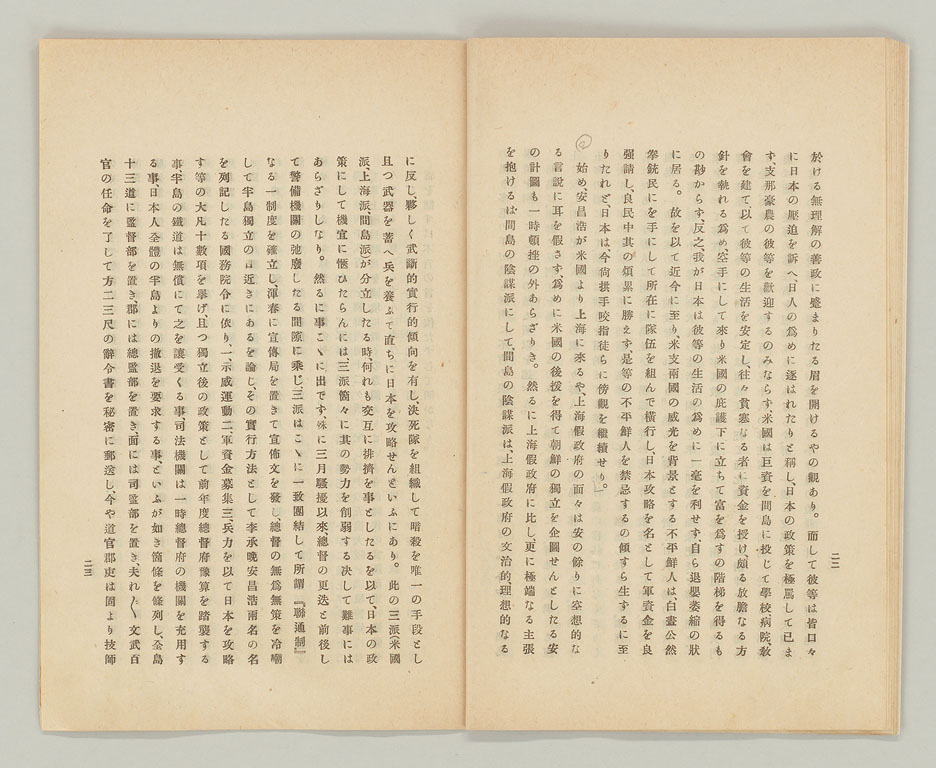 於ける無理解の善政に蹙まりたる眉を開けるやの觀あり。而して彼等は皆口々
に日本の壓迫を訴へ日人の爲めに逐はれたりと稱し、日本の政策を極罵して已ま
す、支那豪農の彼等を歡迎するのみならす、米國は巨資を間島に投じて學校病院敎
會を建て、以て彼等の生活を安定し、往々貧塞なる者に資金を授け、頗る放膽なる方
針を執れる爲め、空手にして來り米國の庇護下に立ちて富を爲すの階梯を得るも
の尠からす、反之、我が日本は彼等の生活の爲めに一毫を利せす、自ら退嬰萎縮の狀
に居る。故を以て近今に至り米支兩國の威光を背景とする不平鮮人は、白晝公然
拳銃民にを手にして所在に隊伍を組んで横行し、日本攻略を名として軍資金を良
强請し、良民中其の煩累に勝えす、是等の不平鮮人を禁忌するの傾すら生するに至
りたれど、日本は、今尙拱手咬指徒らに傍觀を繼續せり。」
始め、安昌浩が米國より上海に來るや、上海假政府の面々は安の餘りに空想的な
る言說に耳を假さす、爲めに米國の後援を得て朝鮮の獨立を企圖せんとしたる安
の計圖も一時頓挫の外あらざりき。然るに上海假政府に比し、更に極端なる主張
を抱けるは間島の陰謀派にして、間島の陰謀派は、上海假政府の文治的、理想的なる
二二
に反し、夥しく武斷的實行的傾向を有し、決死隊を組織して暗殺を唯一の手段とし
且つ武器を蓄へ兵を養ふて直ちに日本を攻略せんといふにあり。此の三派(米國
派、上海派間島派)が分立したる時、何れも交互に排擠を事としたるを以て、日本の政
策にして機宜に愜ひたらんには、三派箇々に其の勢力を削弱する決して難事には
あらざりしなり。然るに事こゝに出です、殊に三月騷擾以來、總督の更迭と前後し
て警備機關の弛廢したる間隙に乘じ、三派はこゝに一致團結して所謂『聯通制』
なる一制度を確立し、渾春に宣傳局を置きて宣佈文を發し、總督の無爲無策を冷嘲
して半島獨立の日近きにあるを論じ、その實行方法として李承晩安昌浩兩名の名
を列記したる國務院令に依り、一、示威運動二、軍資金募集三、兵力を以て日本を攻略
す等の大凡十數項を擧げ、且つ獨立後の政策として前年度總督府豫算を踏襲する
事、半島の鐵道は無償にて之を讓受くる事、司法機關は一時總督府の機關を充用す
る事、日本人全體の半島よりの撤退を要求する事、といふが如き箇條を條列し、全島
十三道に監督部を置き、郡には總監部を置き、面には司監部を置き、夫れ〲文武百
官の任命を了して方二三尺の辭令書を秘密に郵送し、今や道官郡吏は固より技師
二三